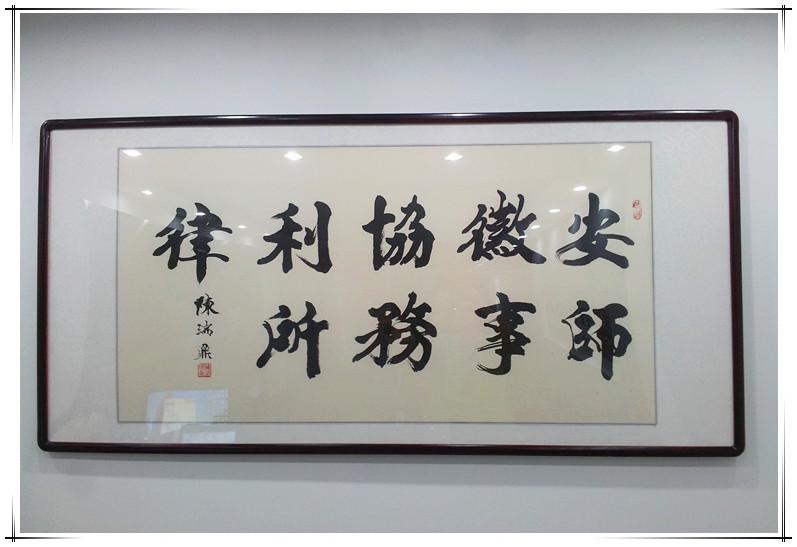 安徽協利律
師事務所
陳瑞鼎